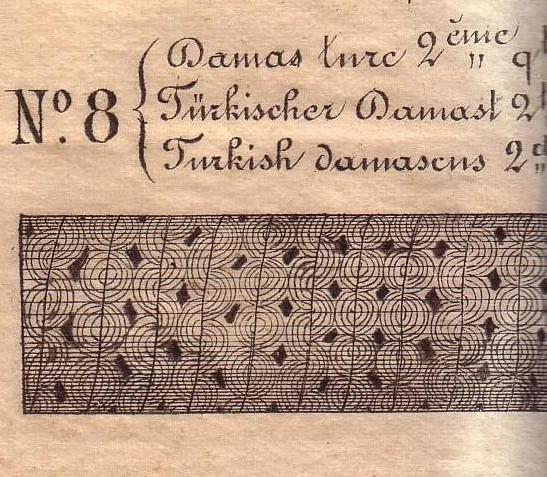 Damas turc 2 ème q
Nº. 8
Türkischer Damast 2
Turkish damascus 2 d